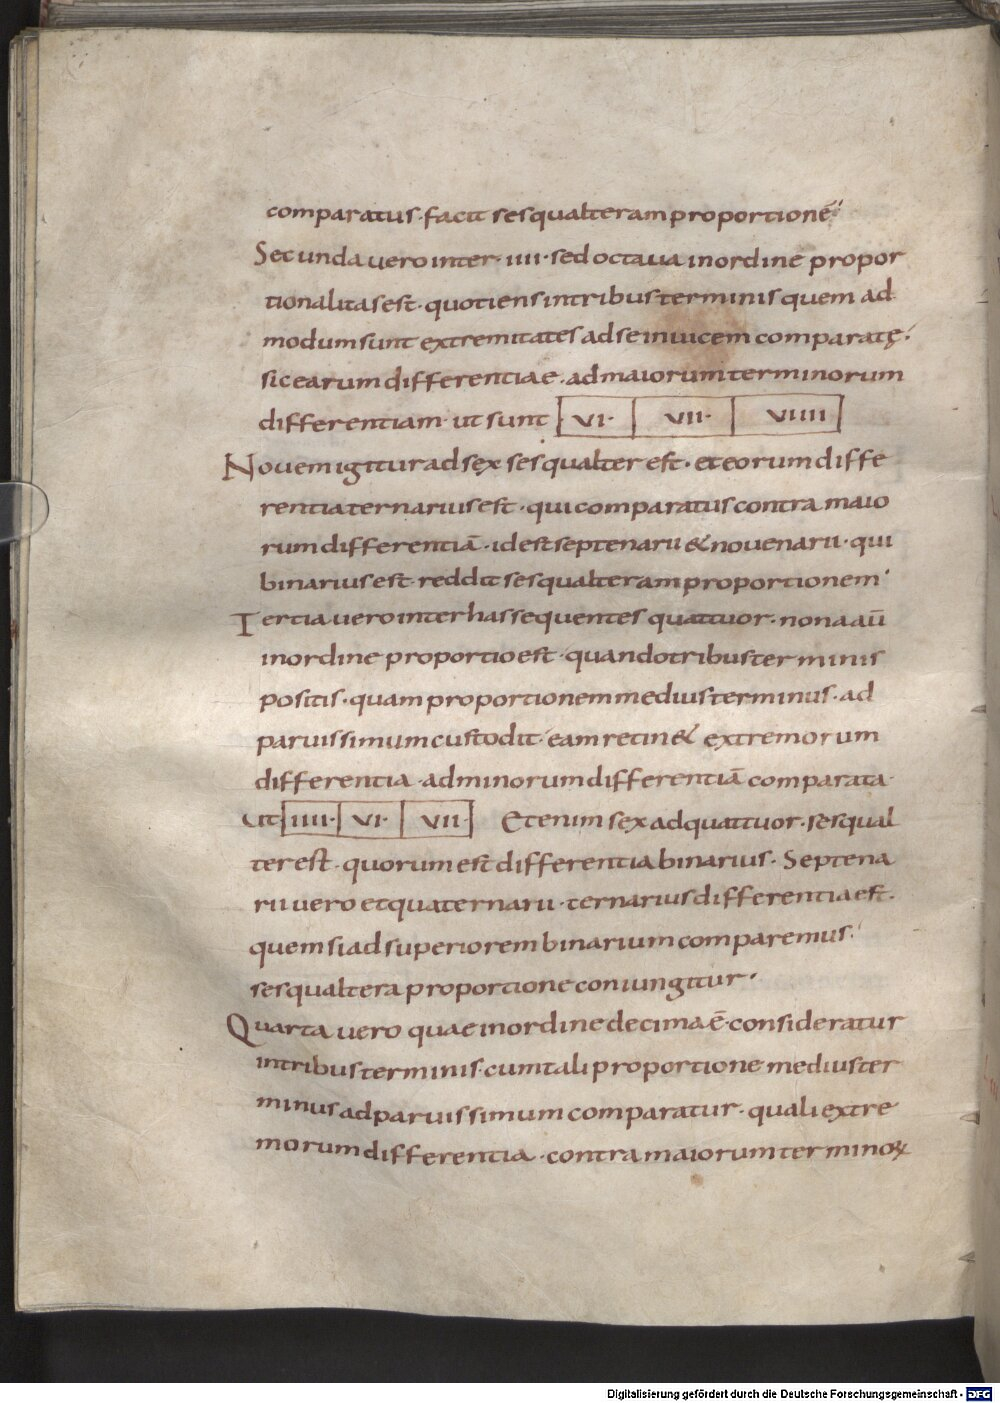 comparatus · facit sesqualteram proportionē·
Secunda uero inter · iiii · sed octaua in ordine propor
tionalitas est · quotiens in tribus terminis quem ad
modum sunt extremitates ad se inuicem comparatę ·
sic earum differentiae · ad maiorum terminorum
differentiam · ut sunt VI · VII · VIIII
Nouem igitur ad sex sesqualter est · et eorum diffe
rentia ternarius est · qui comparatus contra maio
rum differentiā · id est septenarii & nouenarii · qui
binarius est · reddit sesqualteram proportionem ·
Tertia uero inter has sequentes quattuor · nona aū
in ordine proportio est · quando tribus terminis
positis · quam proportionem medius terminus · ad
paruissimum custodit · eam retin& extremorum
differentia · ad minorum differentiā comparata ·
ut IIII · VI · VII · Etenim sex ad quattuor · sesqual
ter est · quorum est differentia binarius · Septena
rii uero et quaternarii · ternarius differentia est ·
quem si ad superiorem binarium comparemus ·
sesqualtera proportione coniungitur ·
Quarta uero quae in ordine decima ē · consideratur
in tribus terminis · cum tali proportione medius ter
minus ad paruissimum comparatur · quali extre
morum differentia · contra maiorum terminoꝝ
Digitalisierung gefördert durch die Deutsche Forschungsgemeinschaft - DFG